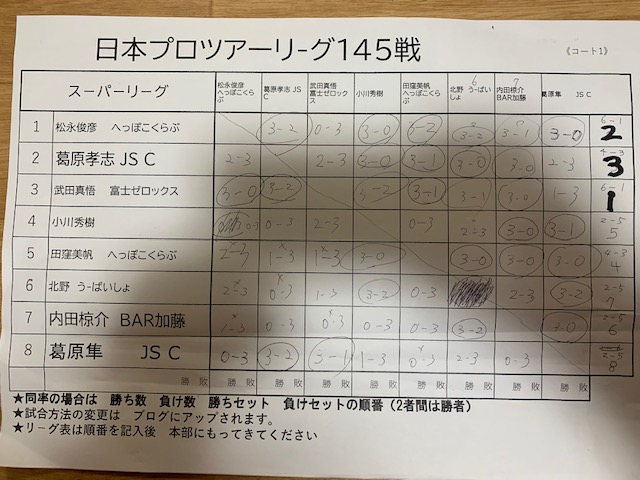 日本プロツアーリーグ145戦
《コート1》
スーパーリーグ 松永俊彦 へっぽこくらぶ 葛原孝志 JS C 武田真悟 富士ゼロックス 小川秀樹 田窪美帆 へっぽこくらぶ 北野 うーばいしょ 6 内田椋介 BAR加藤 7 葛原隼 JS C
1 松永俊彦 へっぽこくらぶ 3-2 0-3 3-0 3-2 3-2 3-1 3-0 6-1 2
2 葛原孝志 JS C 2-3 2-3 3-0 3-1 3-0 3-0 2-3 4-3 3
3 武田真悟 富士ゼロックス 3-0 3-2 3-2 3-1 3-1 3-0 1-3 6-1 1
4 小川秀樹 0-3 0-3 2-3 0-3 2-3 3-0 3-1 2-5 5
5 田窪美帆 へっぽこくらぶ 2-3 1-3 1-3 3-0 3-0 3-0 3-0 4-3 4
6 北野 うーばいしょ 2-3 0-3 1-3 3-2 0-3 2-3 3-2 2-5 7
7 内田椋介 BAR加藤 1-3 0-3 0-3 0-3 0-3 3-2 3-0 2-5 6
8 葛原隼 JS C 0-3 3-2 3-1 1-3 0-3 2-3 0-3 2-5 8
勝 敗 勝 敗 勝 敗 勝 敗 勝 敗 勝 敗 勝 敗 勝 敗
★同率の場合は 勝ち数 負け数 勝ちセット 負けセットの順番（2者間は勝者）
★試合方法の変更は ブログにアップされます。
★リーグ表は順番を記入後 本部にもってきてください